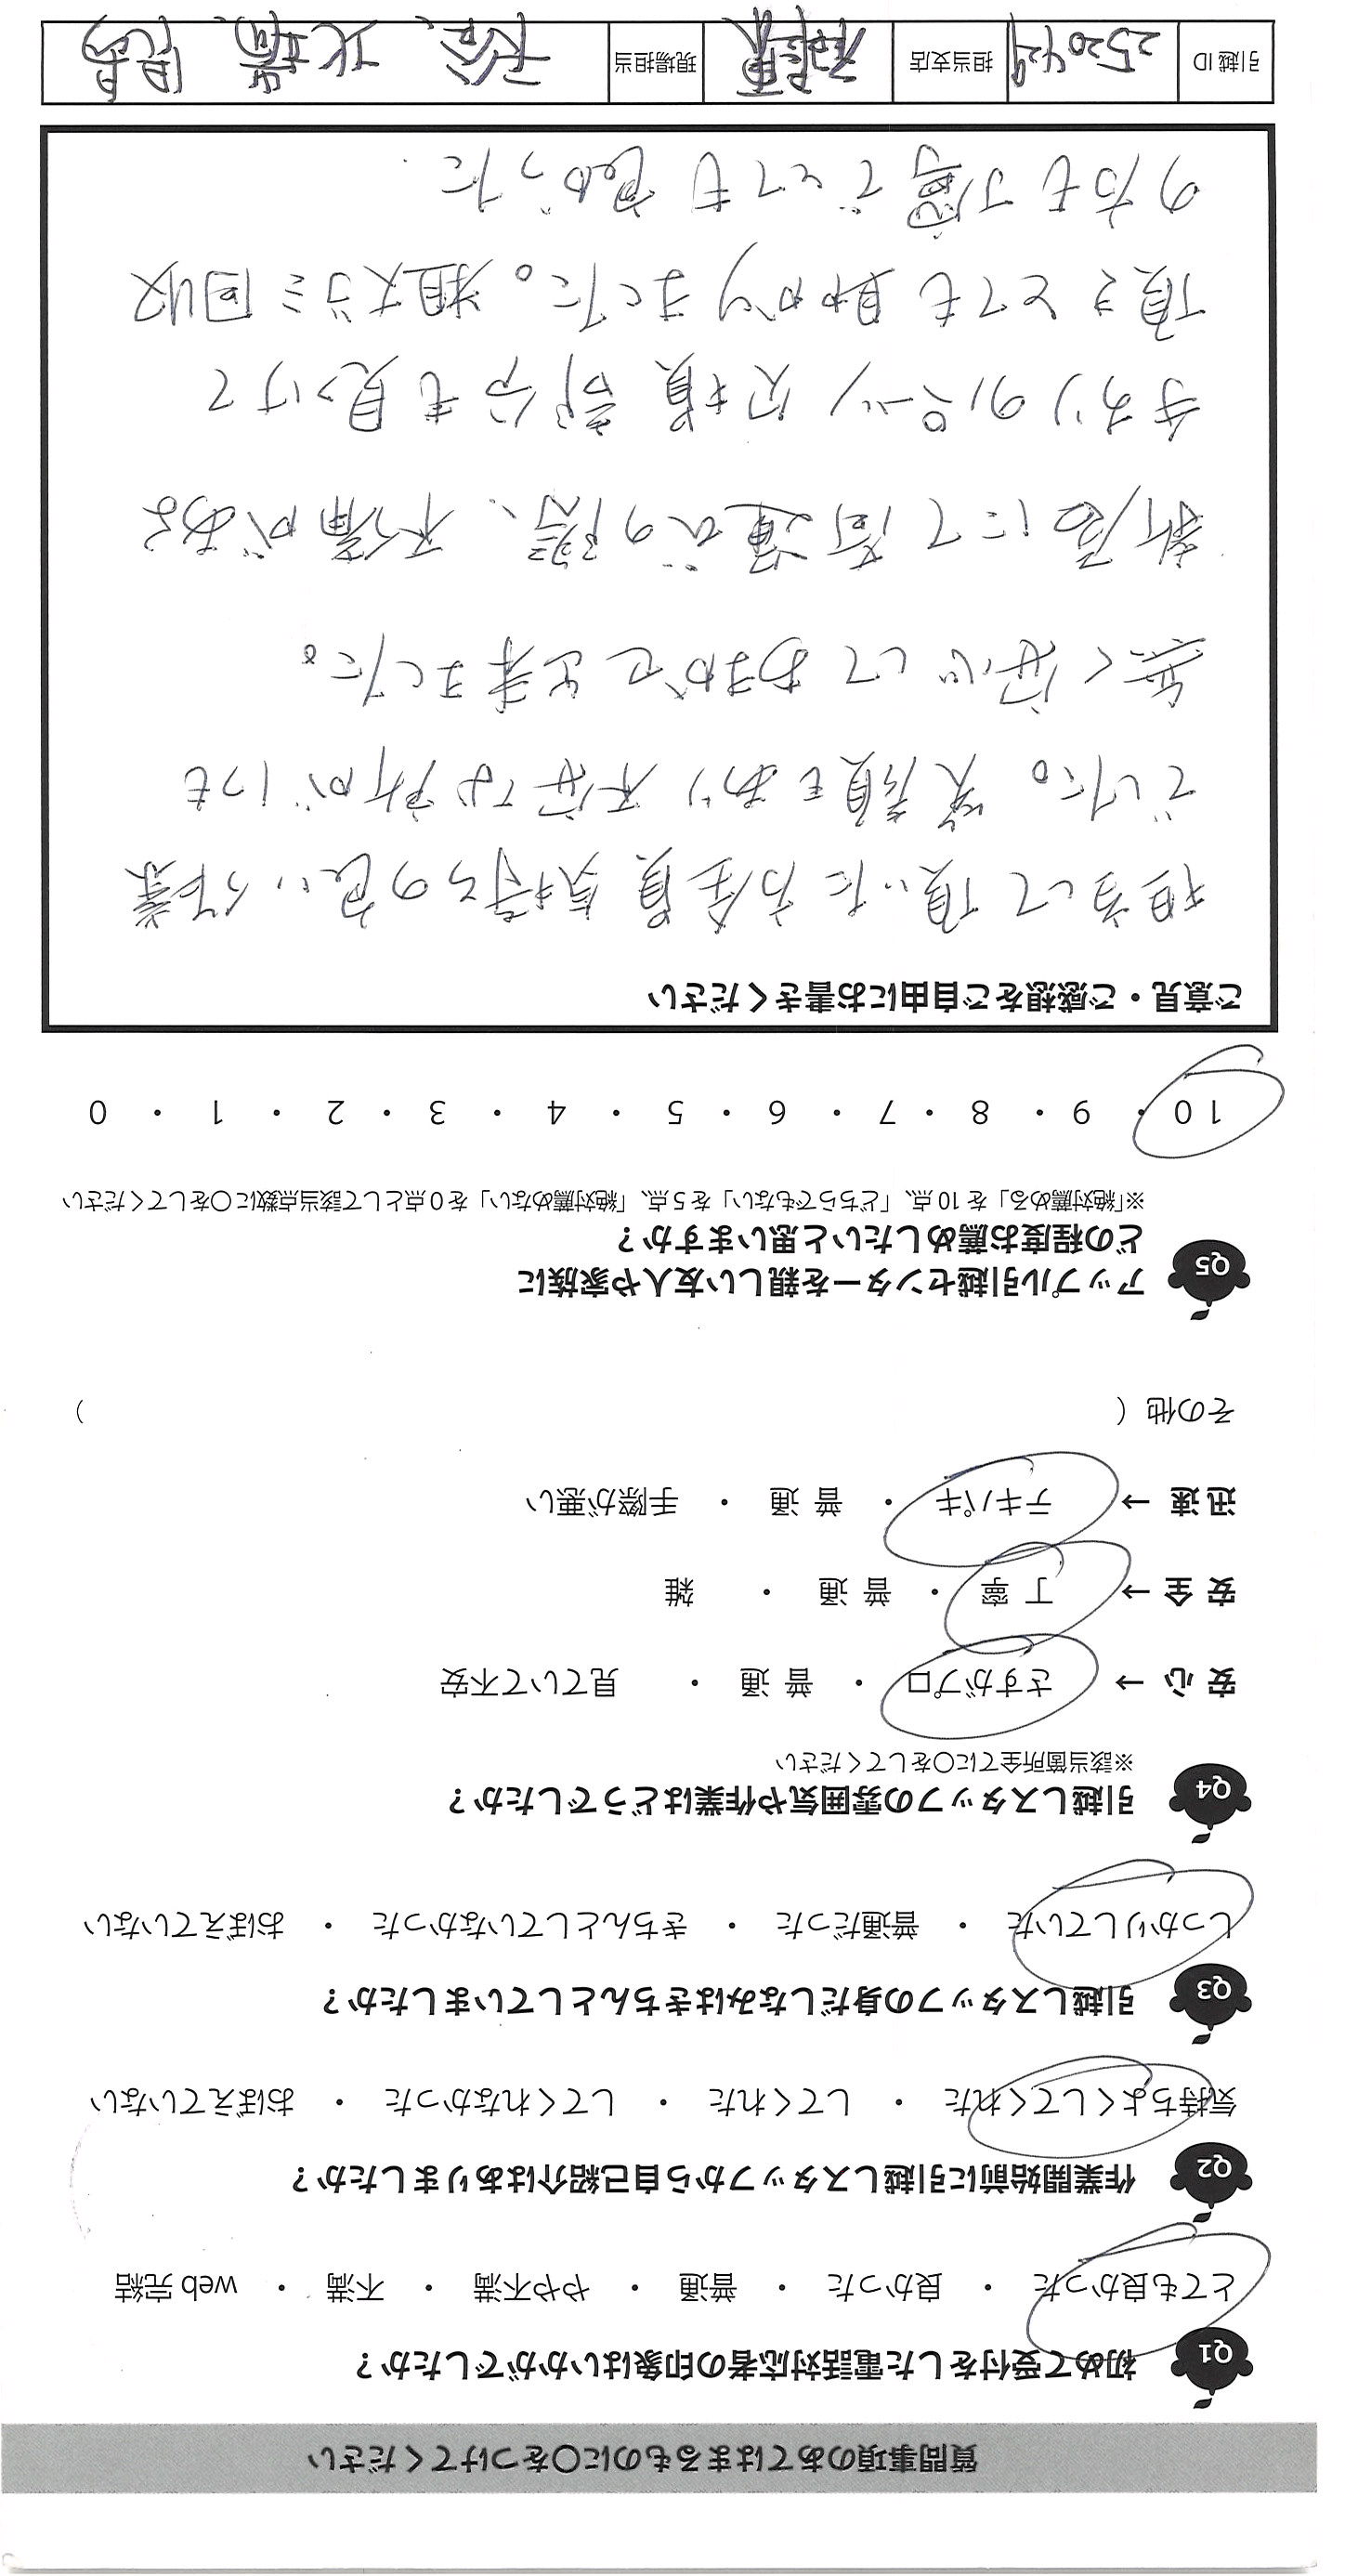 質問事項のあてはまるものに〇をつけてください
Q1 初めて受付をした電話対応者の印象はいかがでしたか？
とても良かった ・ 良かった ・ 普通 ・ やや不満 ・ 不満 ・ web 完結
Q2 作業開始前に引越しスタッフから自己紹介はありましたか？
気持ちよくしてくれた ・ してくれた ・ してくれなかった ・ おぼえていない
Q3 引越しスタッフの身だしなみはきちんとしていましたか？
しっかりしていた ・ 普通だった ・ きちんとしていなかった ・ おぼえていない
Q4 引越しスタッフの雰囲気や作業はどうでしたか？
※該当箇所全てに〇をしてください
安 心 → さすがプロ ・ 普 通 ・ 見ていて不安
安 全 → 丁 寧 ・ 普 通 ・ 雑
迅 速 → テキパキ ・ 普 通 ・ 手際が悪い
その他（ ）
Q5 アップル引越センターを親しい友人や家族に
どの程度お薦めしたいと思いますか？
※「絶対薦める」を 10 点、「どちらでもない」を 5 点、「絶対薦めない」を 0 点として該当点数に〇をしてください
10 ・ 9 ・ 8 ・ 7 ・ 6 ・ 5 ・ 4 ・ 3 ・ 2 ・ 1 ・ 0
ご意見・ご感想をご自由にお書きください
担当して頂いた方全員気持ちの良い作業
でした。笑顔もあり不安な所が1つも
無く安心しておまかせ出来ました。
新居にて荷運びの際、不備があよ
手すりのパーツ欠損部分も見つけて
頂きとても助かりました。粗大ゴミ回収
の方も丁寧でとても良かった.
引越 ID 2520429 担当支店 現場担当 北嶋、